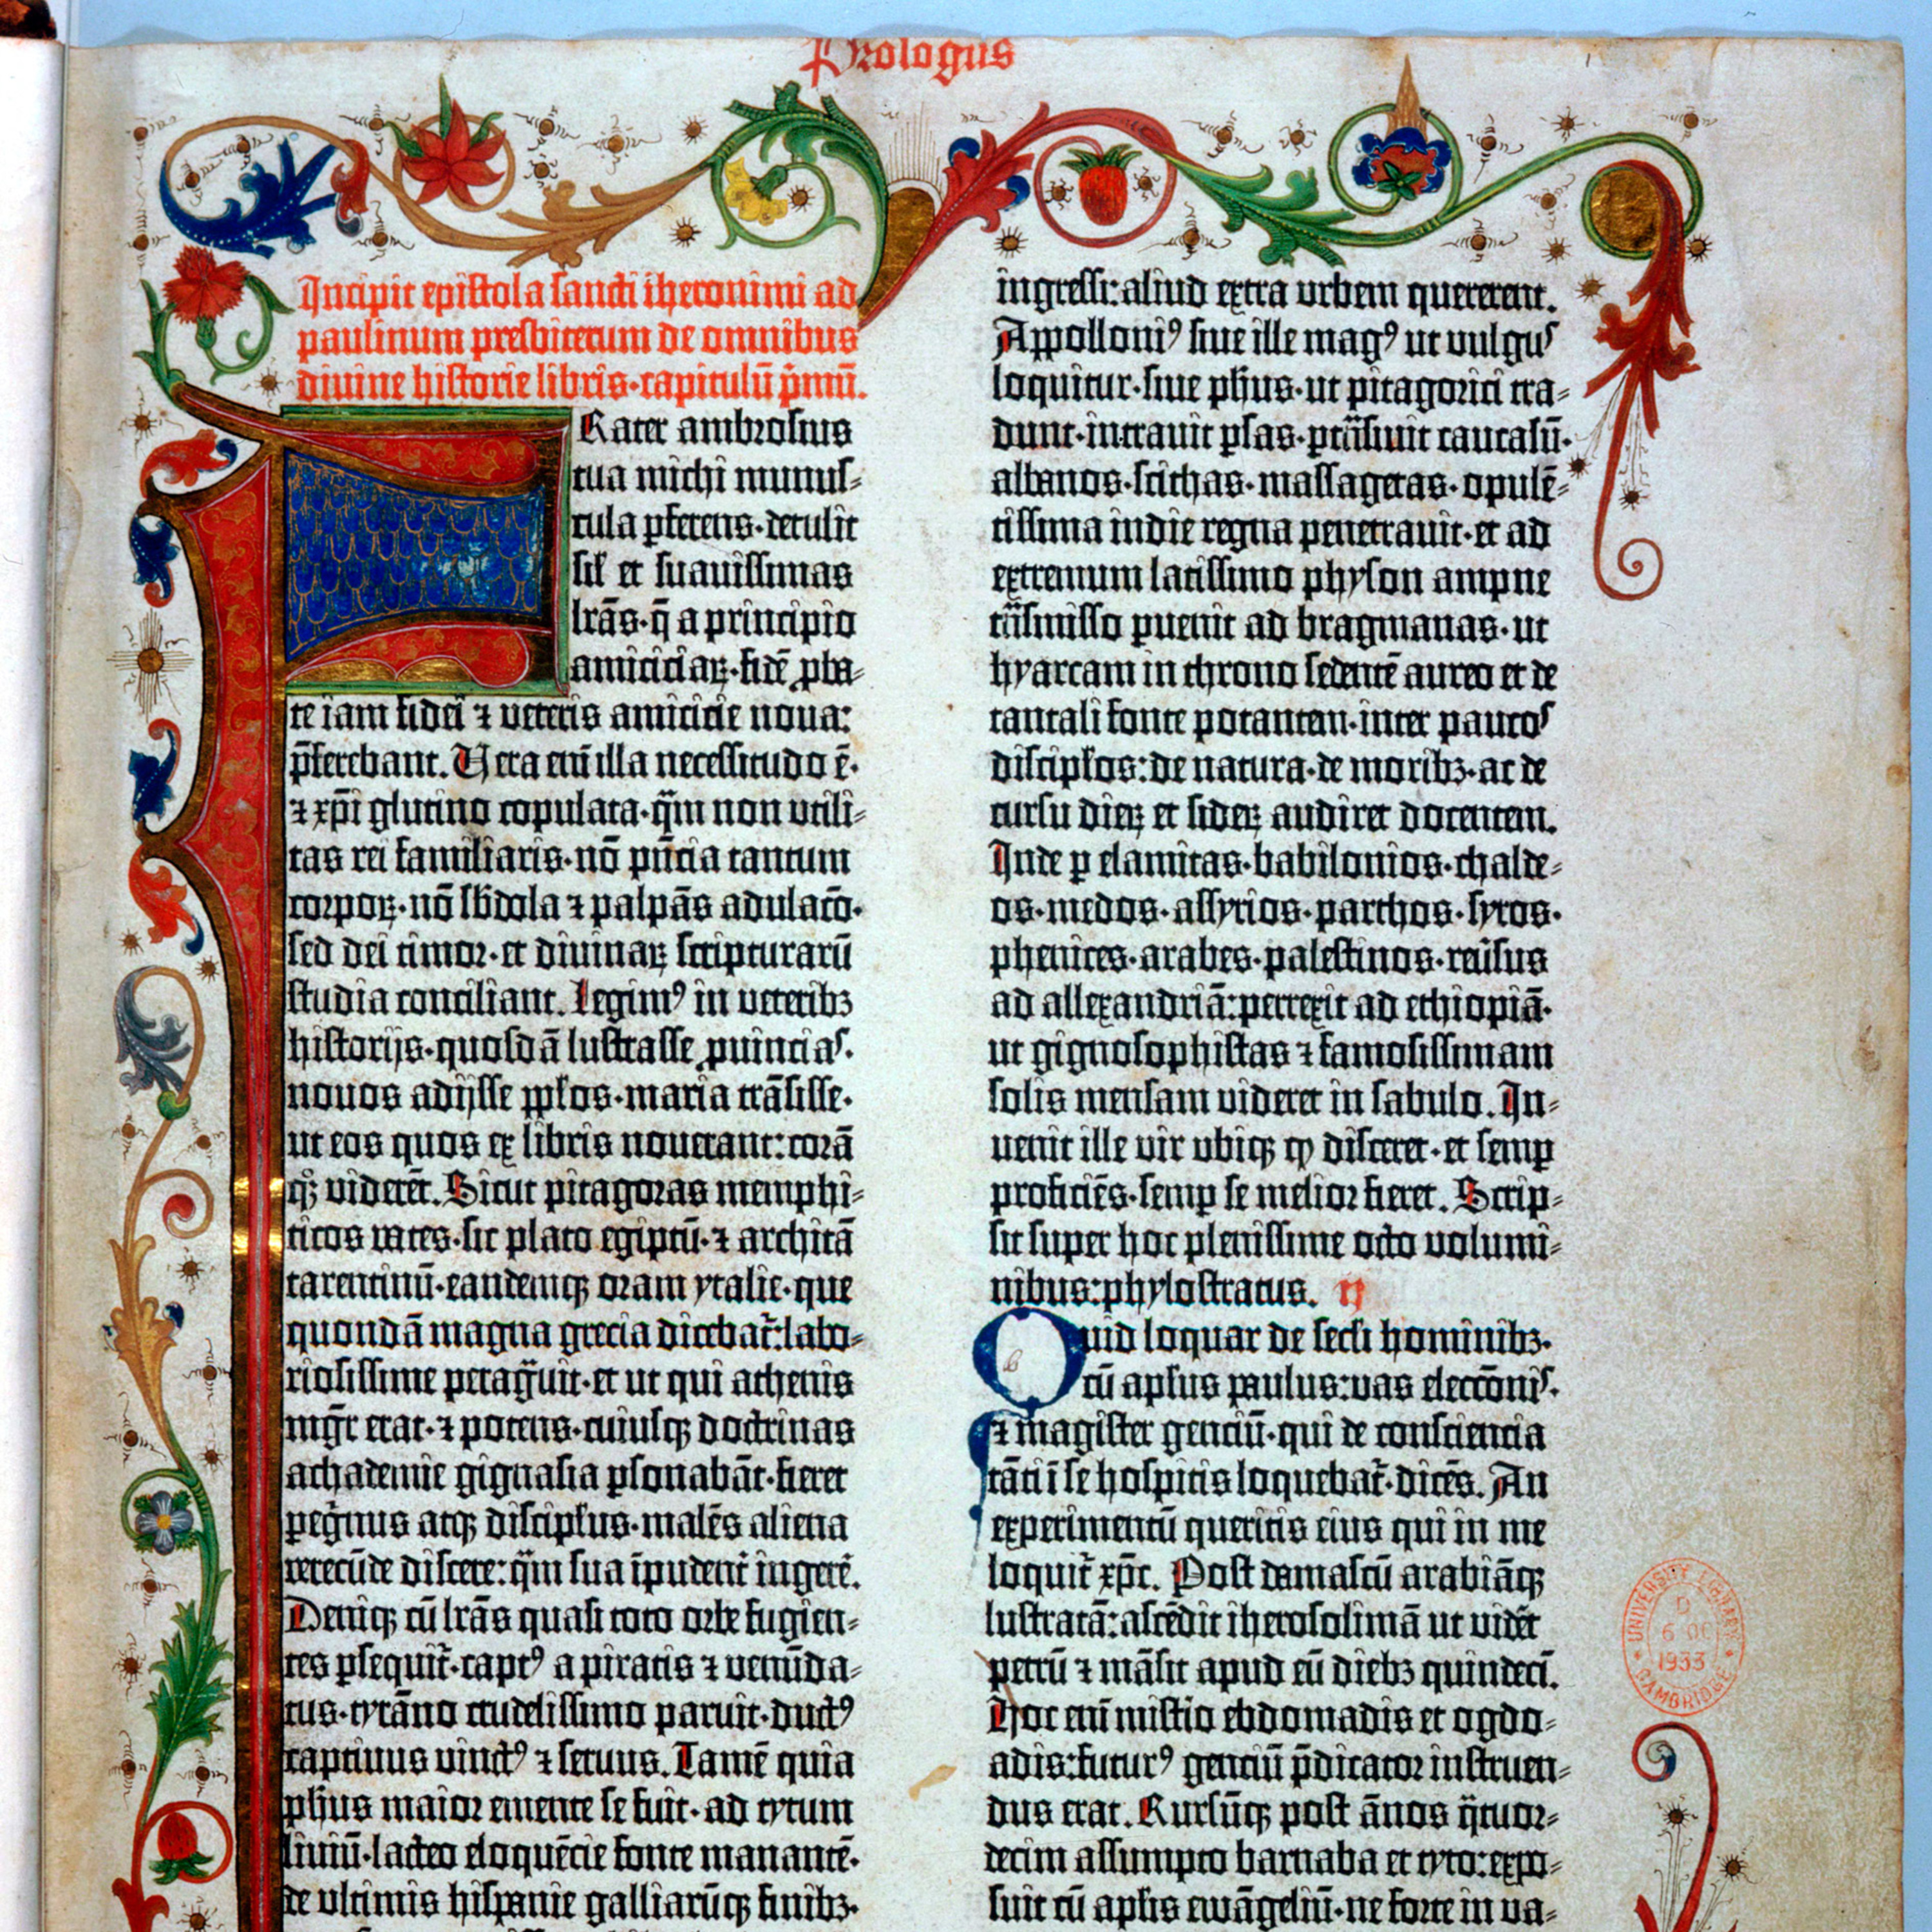 Prologus
Incipit epistola sancti iheronimi ad
paulinum presbiterum de omnibus
divine historie libris·capitulū p̄mū.
Frater ambrosius
tua michi munus-
cula ꝑferens·detulit
sił et suavissimas
lr̄as·q̄ a principio
amiciciaꝝ·fidē ꝓba-
te iam fidei ⁊ veteris amicicie nova:
p̄ferebant. Vera em̄ illa necessitudo ē·
⁊ xp̄i glutino copulata·qm̄ non utili-
tas rei familiaris·nō pn̄cia tantum
corpoꝝ·nō sb̄dola ⁊ palpās adulac̄o·
sed dei timor·et divinaꝝ scripturarū
studia conciliant. Legimꝰ in veteribꝫ
historijs·quosdā lustrasse ꝓvincias·
novos adijsse ꝓpłos·maria trāsisse·
ut eos quos ex libris noverant: corā
qꝫ viderēt. Sicut pitagoras memphi-
ticos vates·sic plato egiptū·⁊ architā
tarentinū·eandemqꝫ oram ytalie·que
quondā magna grecia dicebat̄: labo-
riosissime peragͣvit·et ut qui athenis
mgr̄ erat·⁊ potens·cuiusqꝫ doctrinas
achademie gignasia ꝑsonabāt·fieret
peg̊rinus atqꝫ discipłus·malēs aliena
verecūde discere: qm̄ sua īpudent̄ ingerē.
Deniqꝫ cū lr̄as quasi toto orbe fugien-
tes ꝑsequit̄·captꝰ a piratis ⁊ venūda-
tus·tyrāno crudelissimo paruit·ductꝰ
captivus vinctꝰ ⁊ servus. Tamē quia
pħus maior emente se fuit·ad tytum
liviū·lacteo eloquēcie fonte manantē·
de ultimis hispanie galliarūqꝫ finibꝫ·
ingressi: aliud extra urbem quererent.
Appolloniꝰ sive ille magꝰ ut vulgus
loquitur·sive pħus·ut pitagorici tra-
dunt·intravit ꝑsas·ptͣsivit caucasū·
albanos·scithas·massagetas·opulē-
tissima indie regna penetravit·et ad
extremum latissimo physon ampne
tͣsmisso ꝑvenit ad bragmanas·ut
hyarcam in throno sedentē aureo et de
tantali fonte potantem·inter paucos
discipłos: de natura·de moribꝫ·ac de
cursu dieꝝ et sideꝝ audiret docentem.
Inde ꝑ elamitas·babilonios·chalde-
os·medos·assyrios·parthos·syros·
phenices·arabes·palestinos·reūsus
ad allexandriā: perrexit ad ethiopiā·
ut gignosophistas ⁊ famosissimam
solis mensam videret in sabulo. In-
venit ille vir ubiqꝫ qͩ disceret·et semꝑ
proficiēs·semꝑ se melior fieret. Scrip-
sit super hoc plenissime octo volumi-
nibus: phylostratus. ij
Quid loquar de secłi hominibꝫ·
cū apłus paulus: vas electōnis·
⁊ magister genciū·qui de consciencia
tāti ī se hospitis loquebat̄·dicēs. An
experimentū queritis eius qui in me
loquit̄ xp̄c. Post damascū arabiāqꝫ
lustratā: ascēdit iherosolimā ut vidēt
petrū ⁊ māsit apud eū diebꝫ quindeci̅.
Hoc em̄ mistio ebdomadis et ogdo-
adis: futurꝰ genciū p̄dicator instruen-
dus erat. Rursūqꝫ post ānos qͣtuor-
decim assumpto barnaba et tyto: expo-
suit cū apłis ewāgeliū·ne forte in va-
UNIVERSITY LIBRARY
6 OC
1933
CAMBRIDGE